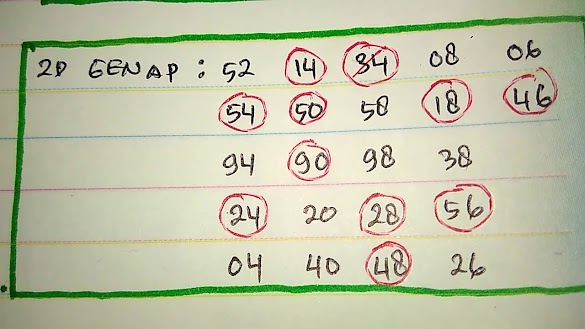 2D GENAP : 52 14 34 08 06
54 50 58 18 46
94 90 98 38
24 20 28 56
04 40 48 26